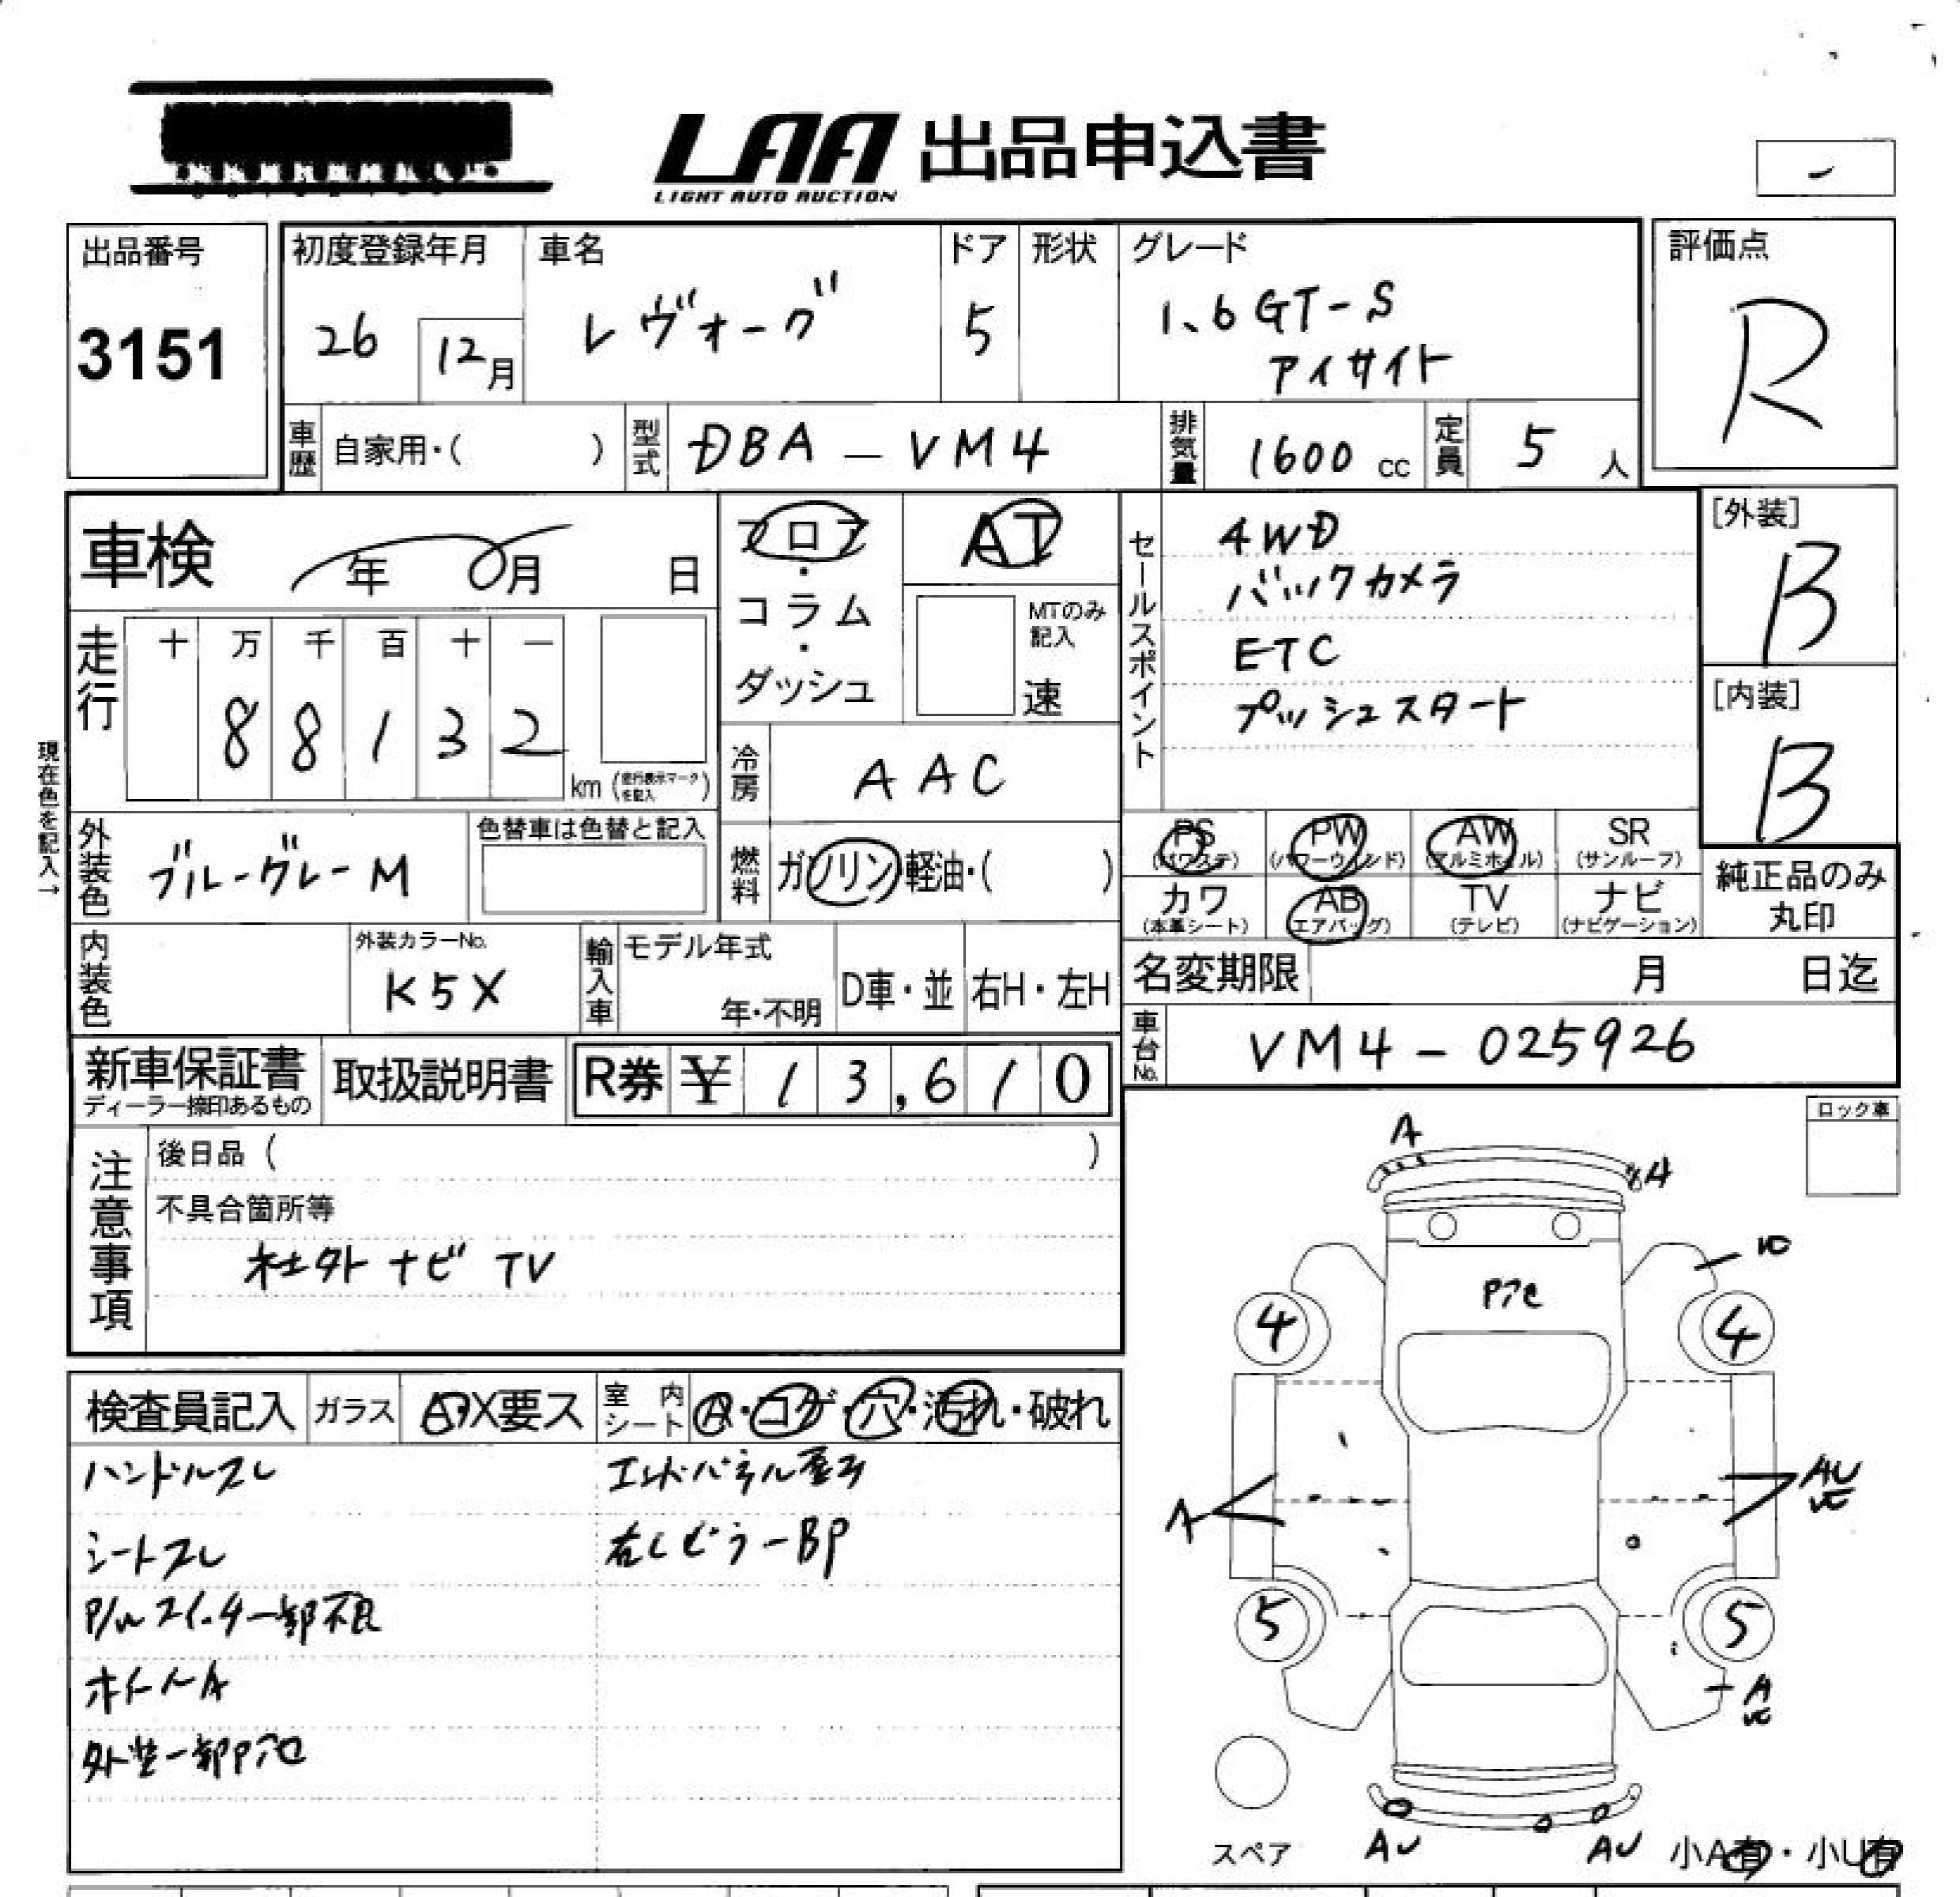 LAA 出品申込書
LIGHT AUTO AUCTION
出品番号
3151
初度登録年月
26 12月
車名
レヴォーグ
ドア
5
形状
グレード
1.6 GT-S
アイサイト
評価点
R
車歴 自家用・( )
型式 DBA - VM4
排気量 1600 cc
定員 5 人
車検 年 月 日
フロア・コラム・ダッシュ
AT
MTのみ記入
速
セールスポイント
4WD
バックカメラ
ETC
プッシュスタート
[外装]
B
[内装]
B
走行
十 万 千 百 十 一
8 8 1 3 2
km (走行表示マークを記入)
現在色を記入→
冷房 AAC
外装色 ブルーグレーM
色替車は色替と記入
燃料 ガソリン 軽油・( )
PS (パワステ)
PW (パワーウィンド)
AW (アルミホイル)
SR (サンルーフ)
カワ (本革シート)
AB (エアバッグ)
TV (テレビ)
ナビ (ナビゲーション)
純正品のみ
丸印
内装色
外装カラーNo.
K5X
輸入車
モデル年式
年・不明
D車・並
右H・左H
名変期限 月 日迄
車台No. VM4-025926
新車保証書
ディーラー捺印あるもの
取扱説明書
R券 ¥ 13,610
注意事項
後日品 ( )
不具合箇所等
社外ナビ TV
ロック車
検査員記入
ガラス
A・X要ス
室内シート
・コゲ・穴・汚れ・破れ
ハンドルスレ
シートスレ
P/Wスイッチ一部不良
ボトムA
外装一部Pアセ
エンドパネル歪み
右しピラーBP
A
A
Pアセ
4
4
A
AU
5
5
A
スペア
AU
AU
小A有・小U有